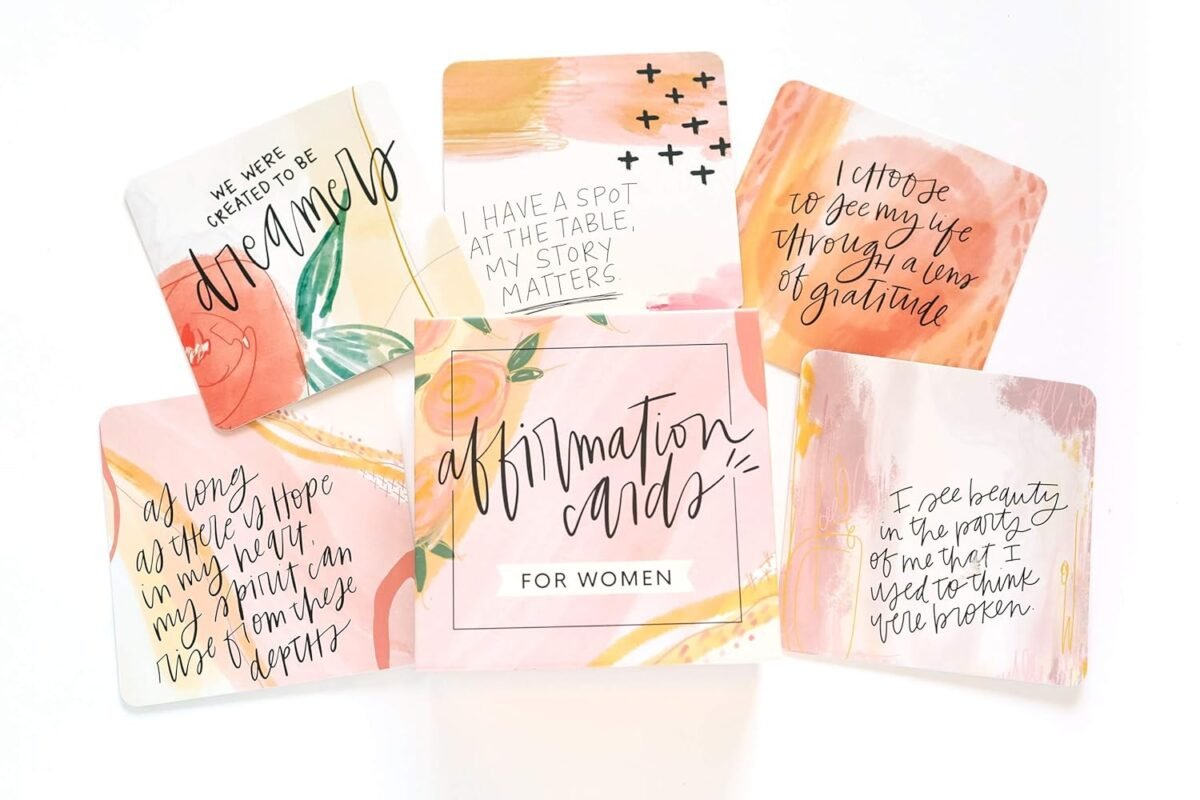 WE WERE
CREATED TO BE
dreamers
I HAVE A SPOT
AT THE TABLE,
MY STORY
MATTERS.
I CHOOSE
to see my life
through a lens
of gratitude
as long
as there is hope
in my heart,
my spirit can
rise from these
depths
affirmation
cards
FOR WOMEN
I see beauty
in the parts
of me that I
used to think
were broken.